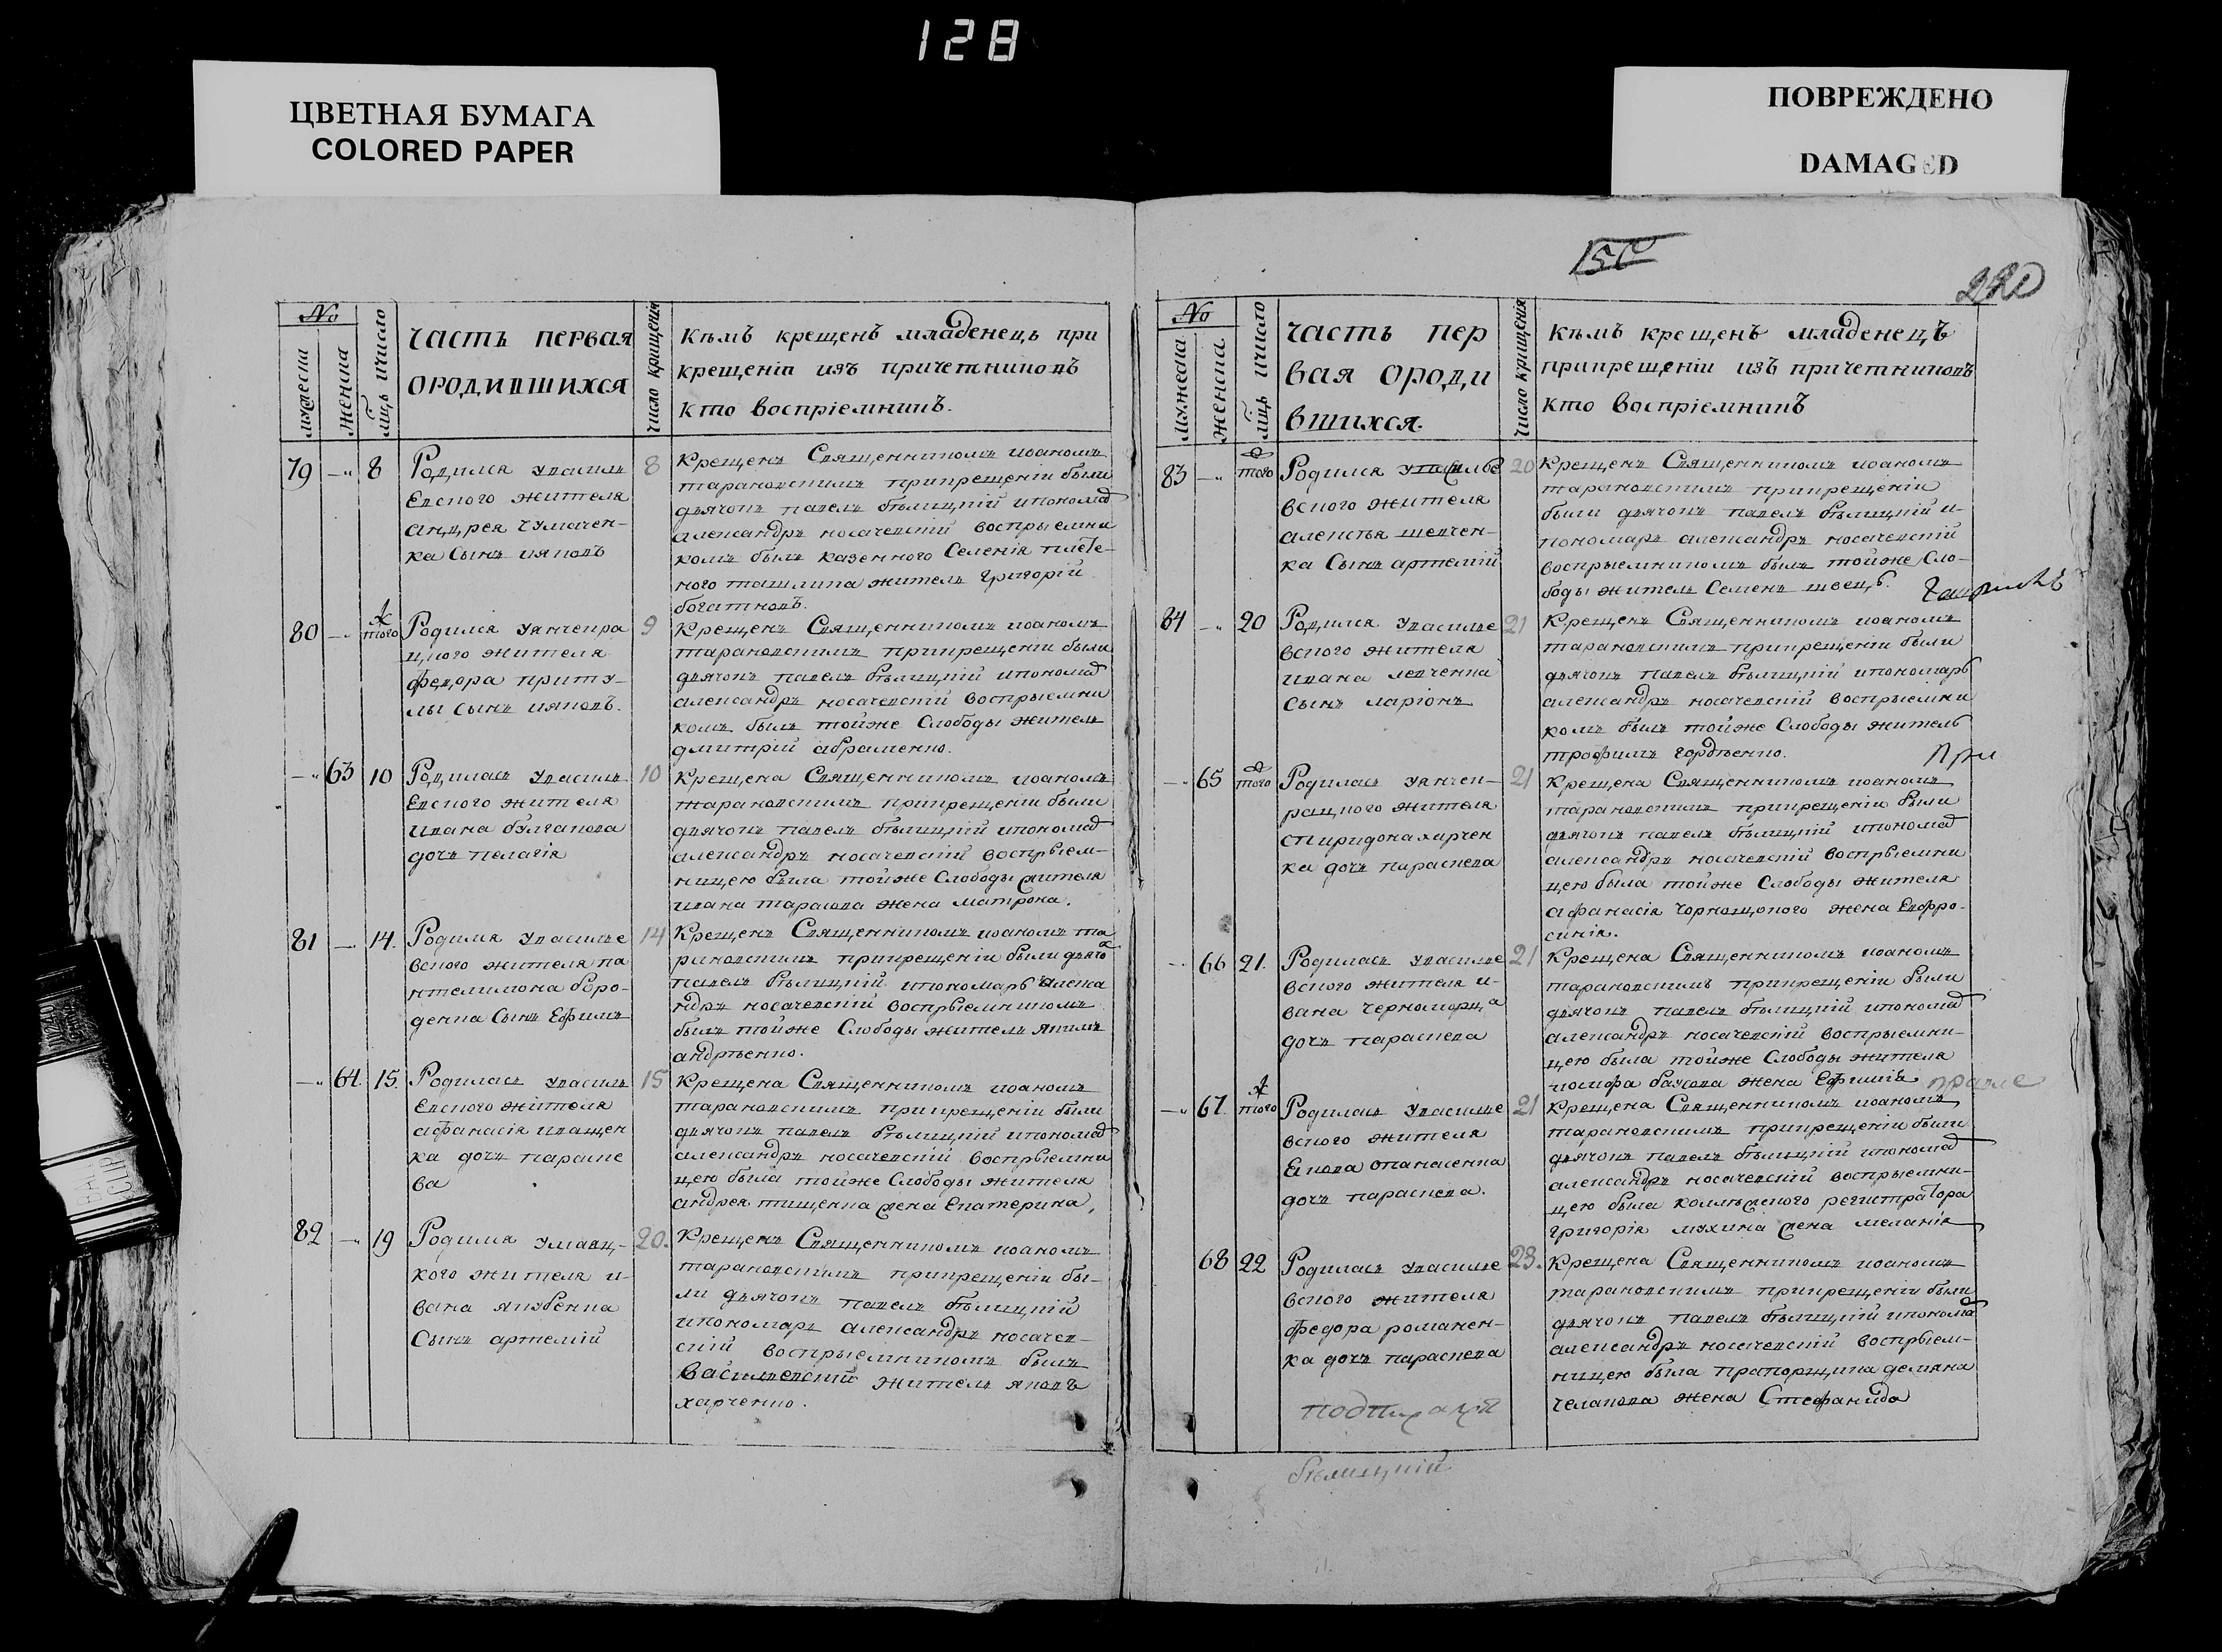 128
ЦВЕТНАЯ БУМАГА
COLORED PAPER
ПОВРЕЖДЕНО
DAMAGED
220
№
мужеска
женска
мць ичисло
часть первая
ородившихся
число крищения
кѣмъ крещенъ младенець при
крещеніи изъ причетниковъ
кто воспріемникъ.
79 8 Родился увасиль
евского жителя
андрея чумачен-
ка Сынъияковъ
8 Крещенъ Священникомъ иоаномъ
тарановскимъ прикрещеніи были
дьячокъ павелъ бѣлицкій ипономар
александръ носачевскій воспрыемни
комъ былъ казенного Селенія плете-
ного ташлика житель григорій
богатковъ.
80 того Родился уянчекра
цкого жителя
федора приту-
лы сынъ ияковъ.
9 Крещенъ Священникомъ иоаномъ
тарановскимъ прикрещеніи были
дьячокъ павелъ бѣлицкій ипономар
александръ носачевскій воспрыемни
комъ былъ тойже Слободы житель
дмитрій абраменко.
63 10 Родилась увасиль
евского жителя
ивана булгакова
дочь пелагія
10 Крещена Священникомъ иоаномъ
тарановскимъ прикрещеніи были
дьячокъ павелъ бѣлицкій ипономар
александръ носачевскій воспрыем-
ницею была тойже Слободы жителя
ивана тарасова жена матрона.
81 14. Родился увасилье
вского жителя па
нтелимона боро-
денка Сынъ Ефимъ
14 Крещенъ Священникомъ иоаномъ та
рановскимъ прикрещеніи были дьячо
павелъ бѣлицкій ипономарь алекса
ндръ носачевскій воспрыемникомъ
былъ тойже Слободы житель якимъ
андрѣенко.
64. 15. Родилась увасиль
Евского жителя
афанасія иващен
ка дочь параске
ва
15 Крещена Священникомъ иоаномъ
тарановскимъ прикрещеніи были
дьячокъ павелъ бѣлицкій ипономар
александръ носачевскій воспрыемни
цею была тойже Слободы жителя
андрея тищенка жена Екатерина,
82 19 Родился
кого жителя и-
вана якубенка
Сынъ артемій
20. Крещенъ Священникомъ иоаномъ
тарановскимъ прикрещеніи бы-
ли дьячокъ павелъ бѣлицкій
ипономарь александръ носачев-
скій воспрыемникомъ былъ
Васильевскій житель яковъ
харченко.
№
мужеска
женска
мць ичисло
часть пер
вая ороди
вшихся.
число крищения
кѣмъ крещенъ младенецъ
прикрещеніи изъ причетниковъ
кто воспріемникъ
83 того Родился увасилье
вского жителя
алексѣя шевчен-
ка Сынъ артемій
20 Крещенъ Священникомъ иоаномъ
тарановскимъ прикрещеніи
были дьячокъ павелъ бѣлицкій и-
пономарь александръ носачевскій
воспрыемникомъ былъ тойже Сло-
боды житель Семенъ швецъ.
84 20 Родился увасилье
вского жителя
ивана левченка
Сынъ ларіонъ
21 Крещенъ Священникомъ иоаномъ
тарановскимъ прикрещеніи были
дьячокъ павелъ бѣлицкій ипономарь
александръ носачевскій воспрыемни
комъ былъ тойже Слободы житель
трофимъ гордѣенко.
При
65 того Родилась уянчек-
рацкого жителя
спиридона харчен
ка дочь параскева
21 Крещена Священникомъ иоаномъ
тарановскимъ прикрещеніи были
дьячокъ павелъ бѣлицкій ипономар
александръ носачевскій воспрыемни
цею была тойже Слободы жителя
афанасія жена Евфро-
синія.
66 21. Родилась увасилье
вского жителя и-
вана черноморца
дочь параскева
21 Крещена Священникомъ иоаномъ
тарановскимъ прикрещеніи были
дьячокъ павелъ бѣлицкій ипономар
александръ носачевскій воспрыемни-
цею была тойже Слободы жителя
иосифа жена Ефимія
67. того Родилась увасилье
вского жителя
Якова опанасенка
дочь параскева.
21 Крещена Священникомъ иоаномъ
тарановскимъ прикрещеніи были
дьячокъ павелъ бѣлицкій ипономар
александръ носачевскій воспрыемни-
цею была колѣжского регистратора
григорія мухина жена меланія
68 22 Родилась увасилье
вского жителя
федора романен-
ка дочь параскева
23. Крещена Священникомъ иоаномъ
тарановскимъ прикрещеніи были
дьячокъ павелъ бѣлицкій ипонома
александръ носачевскій воспрыем-
ницею была прапорщика демяна
челакова жена Стефанида
бѣлицкій